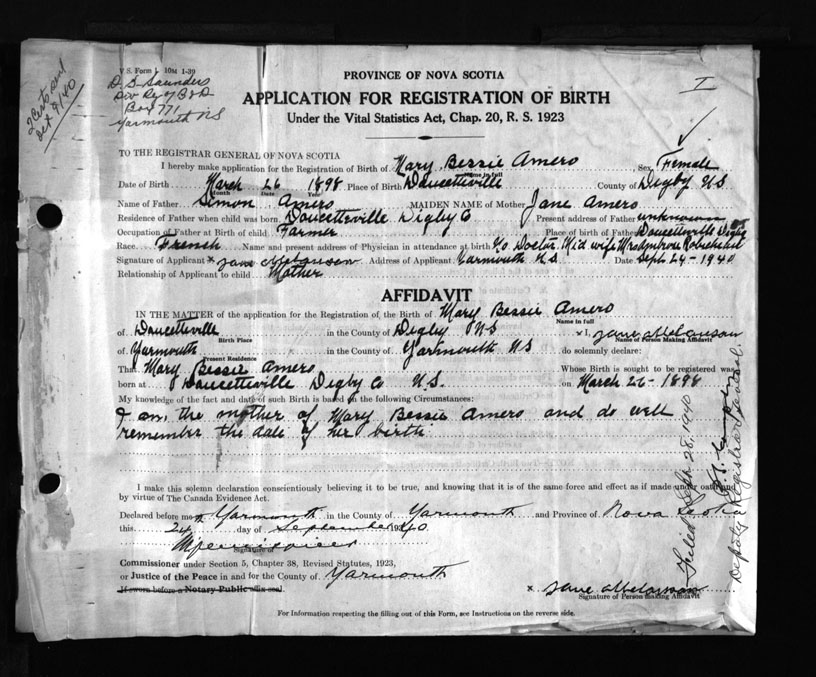 V. S. Form 1. 10M 1-39
D. S. Saunders
Div Reg of B & D
Box 771
Yarmouth NS
PROVINCE OF NOVA SCOTIA
APPLICATION FOR REGISTRATION OF BIRTH
Under the Vital Statistics Act, Chap. 20, R. S. 1923
TO THE REGISTRAR GENERAL OF NOVA SCOTIA
I hereby make application for the Registration of Birth of Mary Bessie Amero Sex Female
Name in full
Date of Birth March 26 1898 Place of Birth Doucetteville County of Digby N.S
Month Date Year
Name of Father Simon Amero MAIDEN NAME of Mother Jane Amero
Residence of Father when child was born Doucetteville Digby Co Present address of Father unknown
Occupation of Father at Birth of child Farmer Place of Birth of Father Doucetteville Digby
Race French Name and present address of Physician in attendance at birth No Doctor. Mid wife Mrs
Signature of Applicant x Jane Address of Applicant Yarmouth N S Date Sept. 24 - 1940
Relationship of Applicant to child Mother
AFFIDAVIT
IN THE MATTER of the application for the Registration of the Birth of Mary Bessie Amero
Name in full
of Doucetteville in the County of Digby N S x I, Jane
Birth Place Name of Person Making Affidavit
of Yarmouth in the County of Yarmouth N S do solemnly declare:
Present Residence
That Mary Bessie Amero Whose Birth is sought to be registered was
born at Doucetteville Digby Co N.S. on March 26 - 1898
My knowledge of the fact and date of such Birth is based on the following Circumstances:
I am the mother of Mary Bessie Amero and do well
remember the date of her birth
I make this solemn declaration conscientiously believing it to be true, and knowing that it is of the same force and effect as if made under oath and
by virtue of The Canada Evidence Act.
Declared before me at Yarmouth in the County of Yarmouth and Province of Nova Scotia
this 24 day of September 1940
Signature of
Commissioner under Section 5, Chapter 38, Revised Statutes, 1923,
or Justice of the Peace in and for the County of Yarmouth
If sworn before a Notary Public affix seal.
x Jane
Signature of Person Making Affidavit
For Information respecting the filling out of this Form, see Instructions on the reverse side.
Filed Sept 28, 1940
Deputy Registrar General.